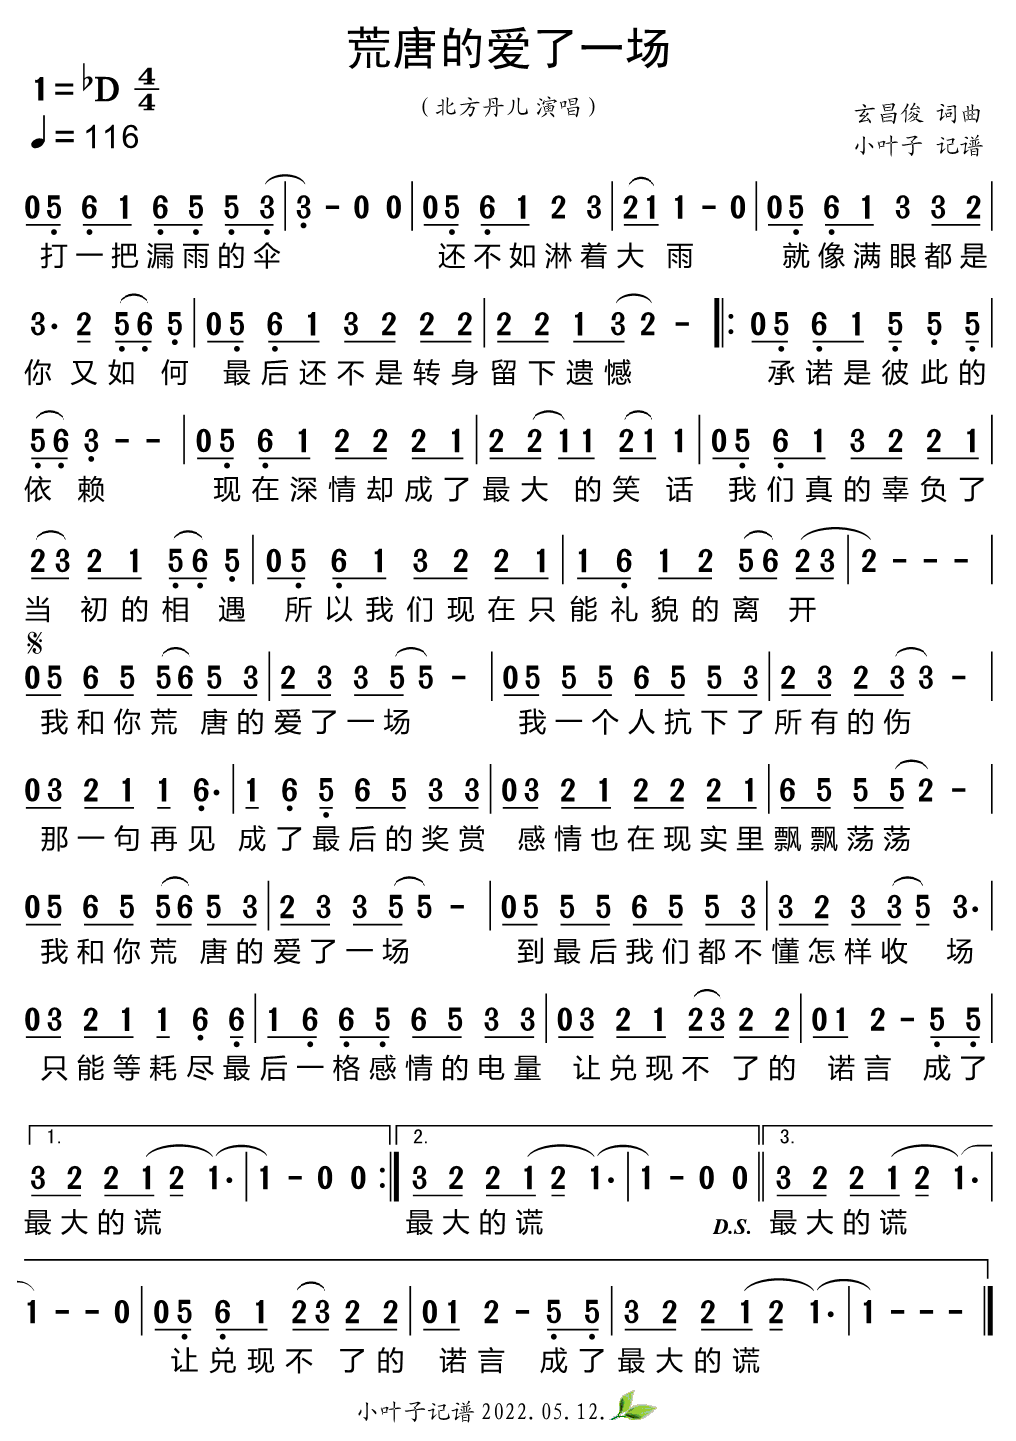 荒唐的爱了一场
1=♭D 4/4
（北方丹儿 演唱）
玄昌俊 词曲
♩=116
小叶子 记谱
05 61 65 53|3-00|05 61 2 3|21 1-0|05 61 3 32|
打一把漏雨的伞 还不如淋着大 雨 就像满眼都是
3· 2 56 5|05 61 32 22|22 13 2-|:05 61 5 5 5|
你又如 何 最后还不是转身留下遗憾 承诺是彼此的
56 3--|05 61 22 21|2 21 1 21 1|05 61 32 21|
依 赖 现在深情却成了最大 的笑 话 我们真的辜负了
23 21 56 5|05 61 32 21|16 12 56 23|2---|
当 初的相 遇 所以我们现在只能礼貌的离 开
𝄋
05 65 56 53|23 35 5-|05 55 65 53|23 23 3-|
我和你荒 唐的爱了一场 我一个人抗下了所有的伤
03 21 1 6·|1 6 5 65 33|03 21 22 21|65 55 2-|
那一句再见 成了最后的奖赏 感情也在现实里飘飘荡荡
05 65 56 53|23 35 5-|05 55 65 53|32 33 5 3·|
我和你荒 唐的爱了一场 到最后我们都不懂怎样收 场
03 21 1 6 6|16 65 65 33|03 21 23 22|01 2-55|
只能等耗尽最后一格感情的电量 让兑现不 了的 诺言 成了
1. 2. 3.
32 21 2 1·|1-00:|32 21 2 1·|1-00‖32 21 2 1·|
最大的谎 最大的谎 D.S. 最大的谎
1--0|05 61 23 22|01 2-55|32 21 2 1·|1---‖
让兑现不 了的 诺言 成了最大的谎
小叶子记谱 2022.05.12.